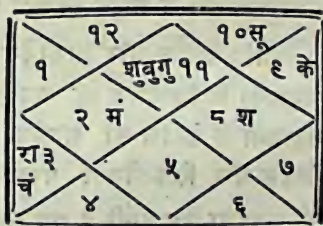 १२ १०सू
१ शुबुगु ११ ९ के
२ मं ८ श
रा ३ ५ ७
चं
४ ६